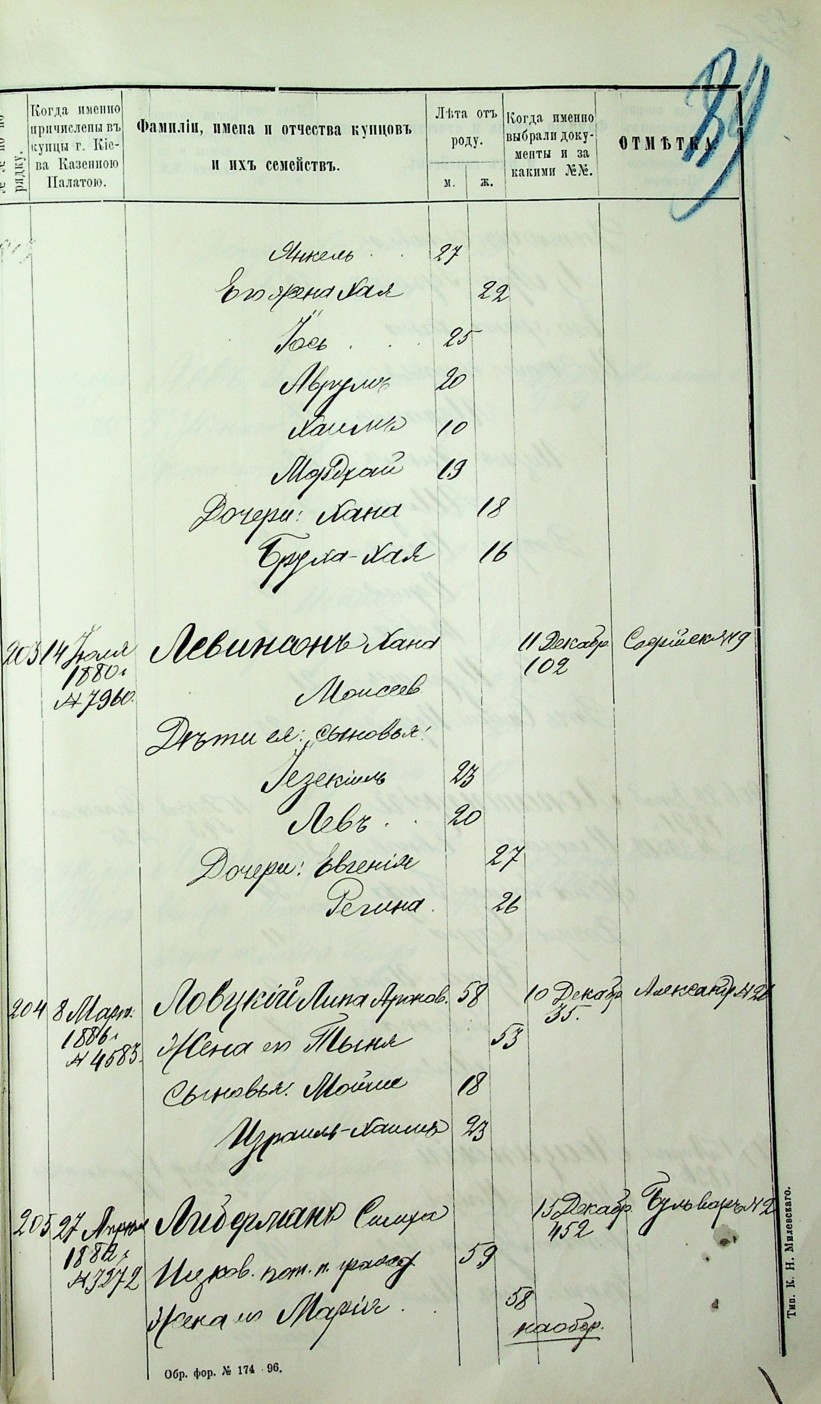 39
№№ по по-
рядку.
Когда именно
причислены въ
купцы г. Кіе-
ва Казенною
Палатою.
Фамиліи, имена и отчества купцовъ
и ихъ семействъ.
Лѣта отъ
роду.
м. ж.
Когда именно
выбрали доку-
менты и за
какими №№.
ОТМѢТКА
Янкель 27
Его жена Хая 22
Іось 25
Аврумъ 20
Хаимъ 10
Мордхай 19
Дочери: Хана 18
Бруха-Хая 16
203 14 Іюля Левинсонъ Хана 11 Декабр. Софійск. №9
1880 г. 102
№ 7960. Моисеев
Дѣти ея: сыновья:
Іезекіиль 23
Левъ 20
Дочери: Евгенія 27
Регина 26
204 8 Март. Ловуцкій Липа Аронов. 58 10 Декабр. Александр №
1886 г. 35.
№ 4583. Жена его Тыня 53
Сыновья: Мойше 18
Израиль-Хаимъ 23
205 27 Апрѣля Либерманъ Симха 15 Декабр. Бульваръ №2
188 г. 452
№ 3272 Ицков. пот. п. гражд. 59
Жена его Марія 58
наобор.
Обр. фор. № 174 - 96.
Тип. К. Н. Милевскаго.